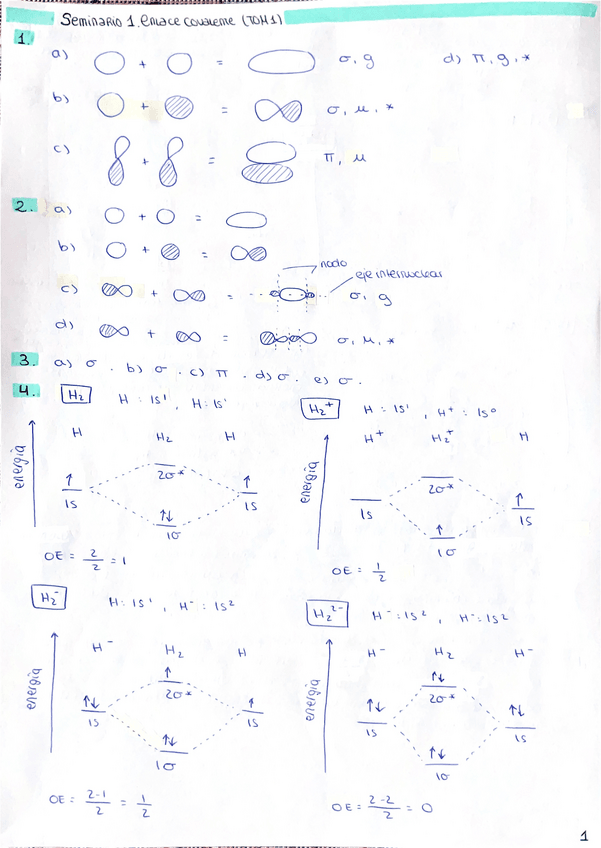 Seminario 1. enlace covalente (TOM1)
1.
a) + = σ, g d) π, g, *
b) + = σ, u, *
c) + = π, u
2. a) + =
b) + =
nodo
eje internuclear
c) + = σ, g
d) + = σ, u, *
3. a) σ . b) σ . c) π . d) σ . e) σ .
4. H₂ H : 1s¹ , H : 1s¹
H H₂ H
energía
2σ*
↑ ↑
1s 1s
↑↓
1σ
OE = 2/2 = 1
H₂⁺ H : 1s¹ , H⁺ : 1s⁰
H⁺ H₂⁺ H
energía
2σ*
↑
1s 1s
↑
1σ
OE = 1/2
H₂⁻ H : 1s¹ , H⁻ : 1s²
H⁻ H₂ H
energía
↑
2σ*
↑↓ ↑
1s 1s
↑↓
1σ
OE = 2-1/2 = 1/2
H₂²⁻ H⁻ : 1s² , H⁻ : 1s²
H⁻ H₂ H⁻
energía
↑↓
2σ*
↑↓ ↑↓
1s 1s
↑↓
1σ
OE = 2-2/2 = 0
1